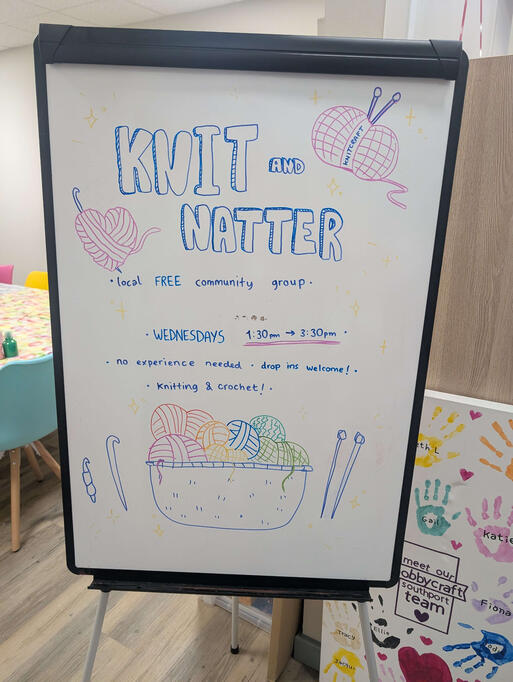 KNIT AND
NATTER
KNITCRAFT
• local FREE community group •
• WEDNESDAYS 1:30pm → 3:30pm •
• no experience needed • drop ins welcome! •
• knitting & crochet! •
Gail
Katie
meet our
hobbycraft
southport
team
Fiona
Tracy
Ellie
Jacqui